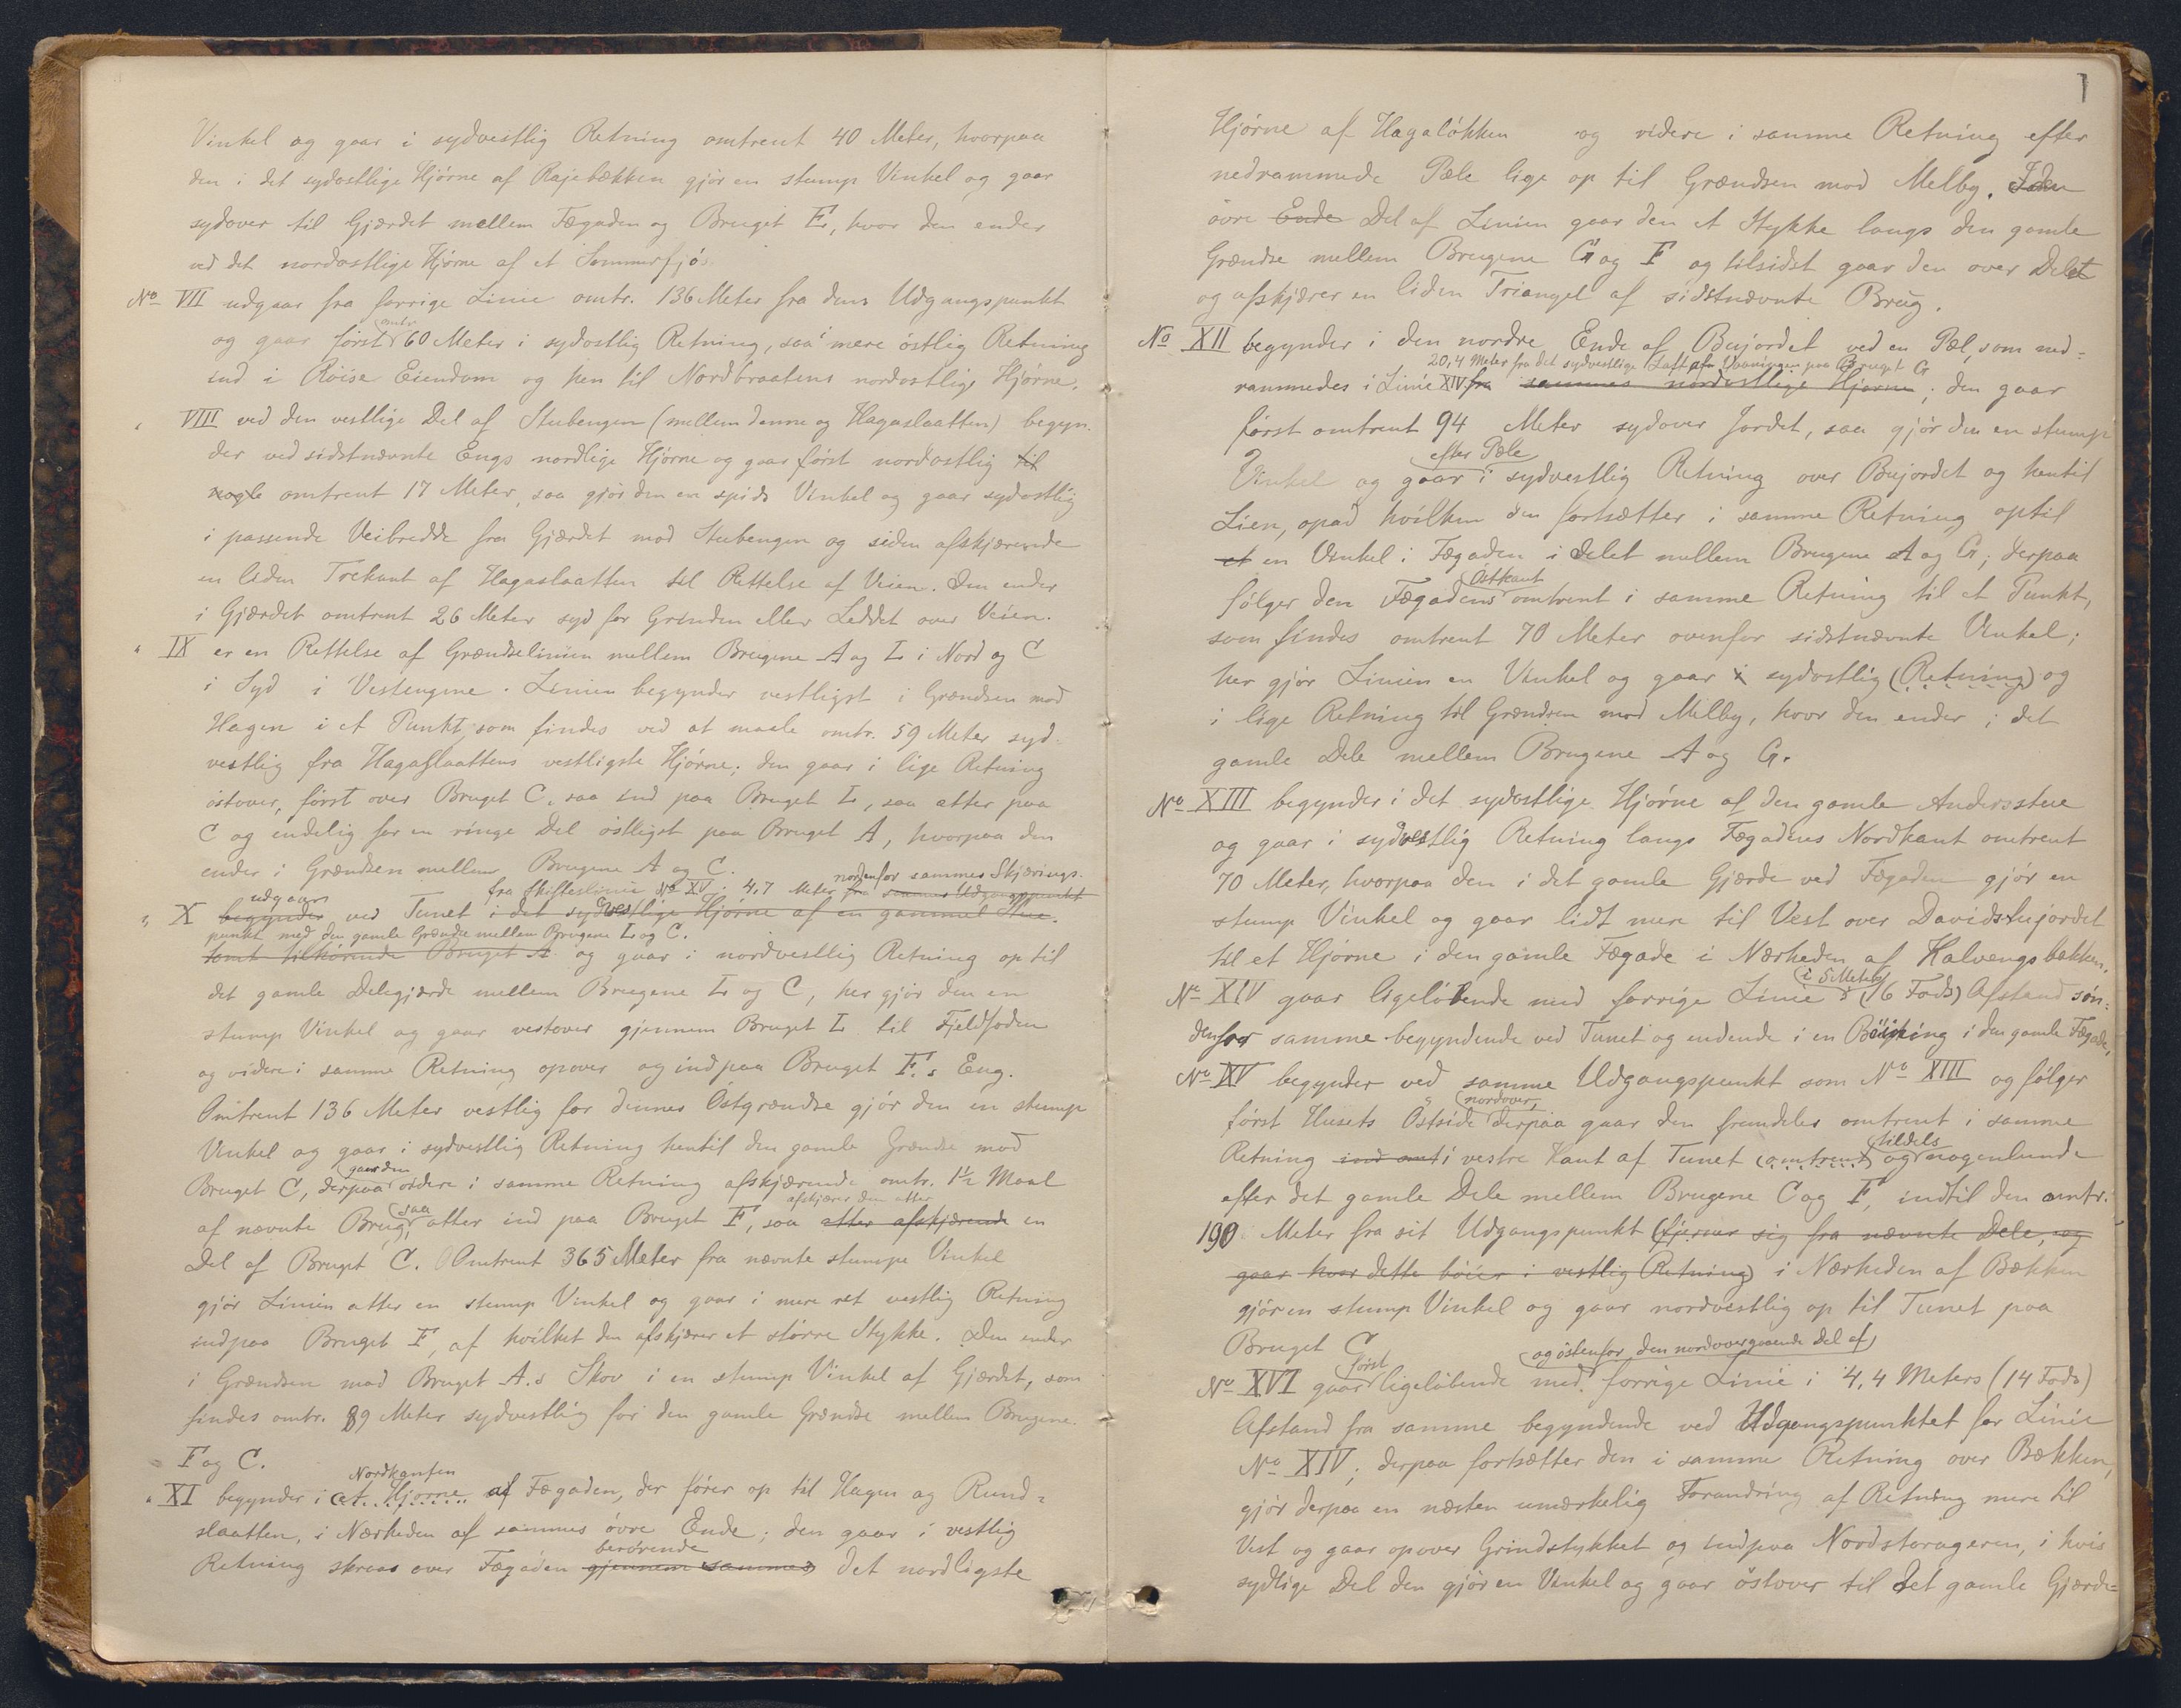 Vinkel og gaar i sydvestlig Retning omtrent 40 Meter, hvorpaa
den i det sydostlige Hjörne af Rajebækken gjör en stump Vinkel og gaar
sydover til Gjærdet mellem Fægaden og Bruget E, hvor den ender
ved det nordostlige Hjörne af et Sommerfjös.
No VII udgaar fra forrige Linie omtr. 136 Meter fra dens Udgangspunkt
omtr
og gaar först 60 Meter i sydostlig Retning, saa i mere östlig Retning
ind i Röise Eiendom og hen til Nordbraatens nordostlige Hjörne.
" VIII ved den vestlige Del af Stubengen (mellem denne og Hagaslaatten) begyn-
der ved sidstnævnte Engs nordlige Hjörne og gaar först nordostlig til
nogle omtrent 17 Meter, saa gjör den en spids Vinkel og gaar sydostlig
i passende Veibredde fra Gjærdet mod Stubengen og siden afskjærende
en liden Trekant af Hagaslaatten til Rettelse af Veien. Den ender
i Gjærdet omtrent 26 Meter syd for Grinden eller Leddet over Veien.
" IX er en Rettelse af Grændselinien mellem Brugene A og L i Nord og C
i Syd i Vestengene. Linien begynder vestligst i Grændsen mod
Hagen i et Punkt, som findes ved at maale omtr. 59 Meter syd-
vestlig fra Hagaslaattens vestligste Hjörne; den gaar i lige Retning
östover, först over Bruget C, saa ind paa Bruget L, saa atter paa
C og endelig for en ringe Del östligst paa Bruget A, hvorpaa den
ender i Grændsen mellem Brugene A og C.
udgaar fra Skifteslinie No XV i 4,7 Meter fra sammes Udgangspunkt nordenfor sammes Skjærings-
" X begynder ved Tunet i det sydvestlige Hjörne af en gammel Stue.
punkt med den gamle Grændse mellem Brugene L og C.
tomt tilhörende Bruget A og gaar i nordvestlig Retning op til
det gamle Delegjærde mellem Brugene L og C, her gjör den en
stump Vinkel og gaar vestover gjennem Bruget L til Fjeldfoden
og videre i samme Retning opover og ind paa Bruget F.s Eng.
Omtrent 136 Meter vestlig for dennes Östgrændse gjör den en stump
Vinkel og gaar i sydvestlig Retning hentil den gamle Grændse mod
gaar den
Bruget C, derpaa videre i samme Retning afskjærende omtr. 1½ Maal
saa afskjærer den atter
af nævnte Brug, atter ind paa Bruget F, saa atter afskjærende en
Del af Bruget C. Omtrent 365 Meter fra nævnte stumpe Vinkel
gjör Linien atter en stump Vinkel og gaar i mere ret vestlig Retning
indpaa Bruget F, af hvilket den afskjærer et större Stykke. Den ender
i Grændsen mod Bruget A.s Skov i en stump Vinkel af Gjærdet, som
findes omtr. 89 Meter sydvestlig for den gamle Grændse mellem Brugene
F og C.
Nordkanten
" XI begynder i et Hjörne af Fægaden, der förer op til Hagen og Rund-
slaatten, i Nærheden af sammes övre Ende; den gaar i vestlig
berörende
Retning skraas over Fægaden gjennem sammes det nordligste
1
Hjörne af Hagalökken og videre i samme Retning efter
nedrammede Pæle lige op til Grændsen mod Melby. I den
övre Ende Del af Linien gaar den et Stykke langs den gamle
Grændse mellem Brugene G og F og tilsidst gaar den over Delet
og afskjærer en liden Triangel af sidstnævnte Brug.
No XII begynder i den nordre Ende af Bujordet ved en Pæl, som ned-
20,4 Meter fra det sydvestlige Laft af Vaaningen paa Bruget G
rammedes i Linie XIV fra sammes nordvestlige Hjørne; den gaar
först omtrent 94 Meter sydover Jordet, saa gjör den en stump
efter Pæle
Vinkel og gaar i sydvestlig Retning over Bujordet og hentil
Lien, opad hvilken den fortsætter i samme Retning optil
et en Vinkel i Fægaden i Delet mellem Brugene A og G; derpaa
Östkant
fölger den Fægadens omtrent i samme Retning til et Punkt,
som findes omtrent 70 Meter ovenfor sidstnævnte Vinkel;
her gjör Linien en Vinkel og gaar i sydostlig (Retning) og
i lige Retning til Grændsen mod Melby, hvor den ender i det
gamle Dele mellem Brugene A og G.
No XIII begynder i det sydostlige Hjörne af den gamle Andersstue
og gaar i sydvestlig Retning langs Fægadens Nordkant omtrent
70 Meter, hvorpaa den i det gamle Gjærde ved Fægaden gjör en
stump Vinkel og gaar lidt mere til Vest over Davidstujordet
til et Hjörne i den gamle Fægade i Nærheden af Kalvengsbækken.
i 5 Meters
No XIV gaar ligelöbende med forrige Linie (16 Fods) Afstand sön-
denfor samme begyndende ved Tunet og endende i en Böining i den gamle Fægade,
No XV begynder ved samme Udgangspunkt som No XIII og fölger
nordover,
först Husets Östside derpaa gaar den fremdeles omtrent i samme
tildels
Retning ind omt i vestre Kant af Tunet (omtrent) og nogenlunde
efter det gamle Dele mellem Brugene C og F, indtil den omtr.
190 Meter fra sit Udgangspunkt (fjerner sig fra nævnte Dele, og
gaar hvor dette böier i vestlig Retning) i Nærheden af Bækken
gjör en stump Vinkel og gaar nordvestlig op til Tunet paa
Bruget C
först og östenfor den nordovergaaende Del af
No XVI gaar ligelöbende med forrige Linie i 4,4 Meters (14 Fods)
Afstand fra samme begyndende ved Udgangspunktet for Linie
No XIV; derpaa fortsætter den i samme Retning over Bækken,
gjör derpaa en næsten umærkelig Forandring af Retning mere til
Vest og gaar opover Grindstykket og indpaa Nordstorageren, i hvis
sydlige Del den gjör en Vinkel og gaar östover til det gamle Gjærde-